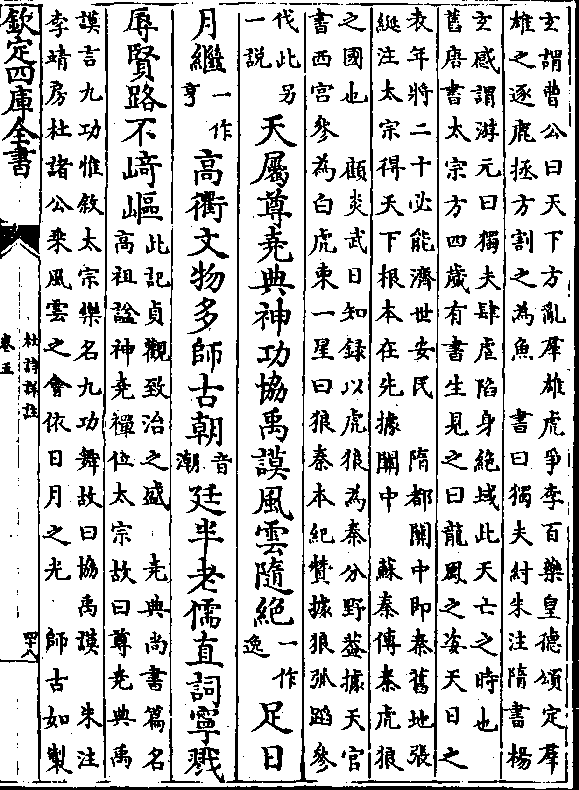 玄謂曹公曰天下方亂羣雄虎爭李百藥皇德頌定羣
雄之逐鹿拯方割之為魚　書曰獨夫紂朱注隋書楊
玄感謂游元曰獨夫肆虐陷身絕域此天亡之時也
舊唐書太宗方四歲有書生見之曰龍鳳之姿天日之
表年將二十必能濟世安民　隋都關中即秦舊地張
綖注太宗得天下根本在先據關中　蘇秦傳秦虎狼
之國也　顧炎武日知録以虎狼為秦分野葢據天官
書西宮參為白虎東一星曰狼秦本紀贊據狼弧蹈參
伐此另一説　天屬尊堯典神功協禹謨風雲隨絶一作逸足日
月繼一作亨高衢文物多師古朝音潮廷半老儒直詞寧戮
辱賢路不崎嶇此記貞觀致治之盛　堯典尚書篇名
高祖諡神堯禪位太宗故曰尊堯典禹
謨言九功惟敘太宗樂名九功舞故曰協禹謨　朱注
李靖房杜諸公乘風雲之會依日月之光　師古如製
欽定四庫全書
杜詩詳註
卷五
四八